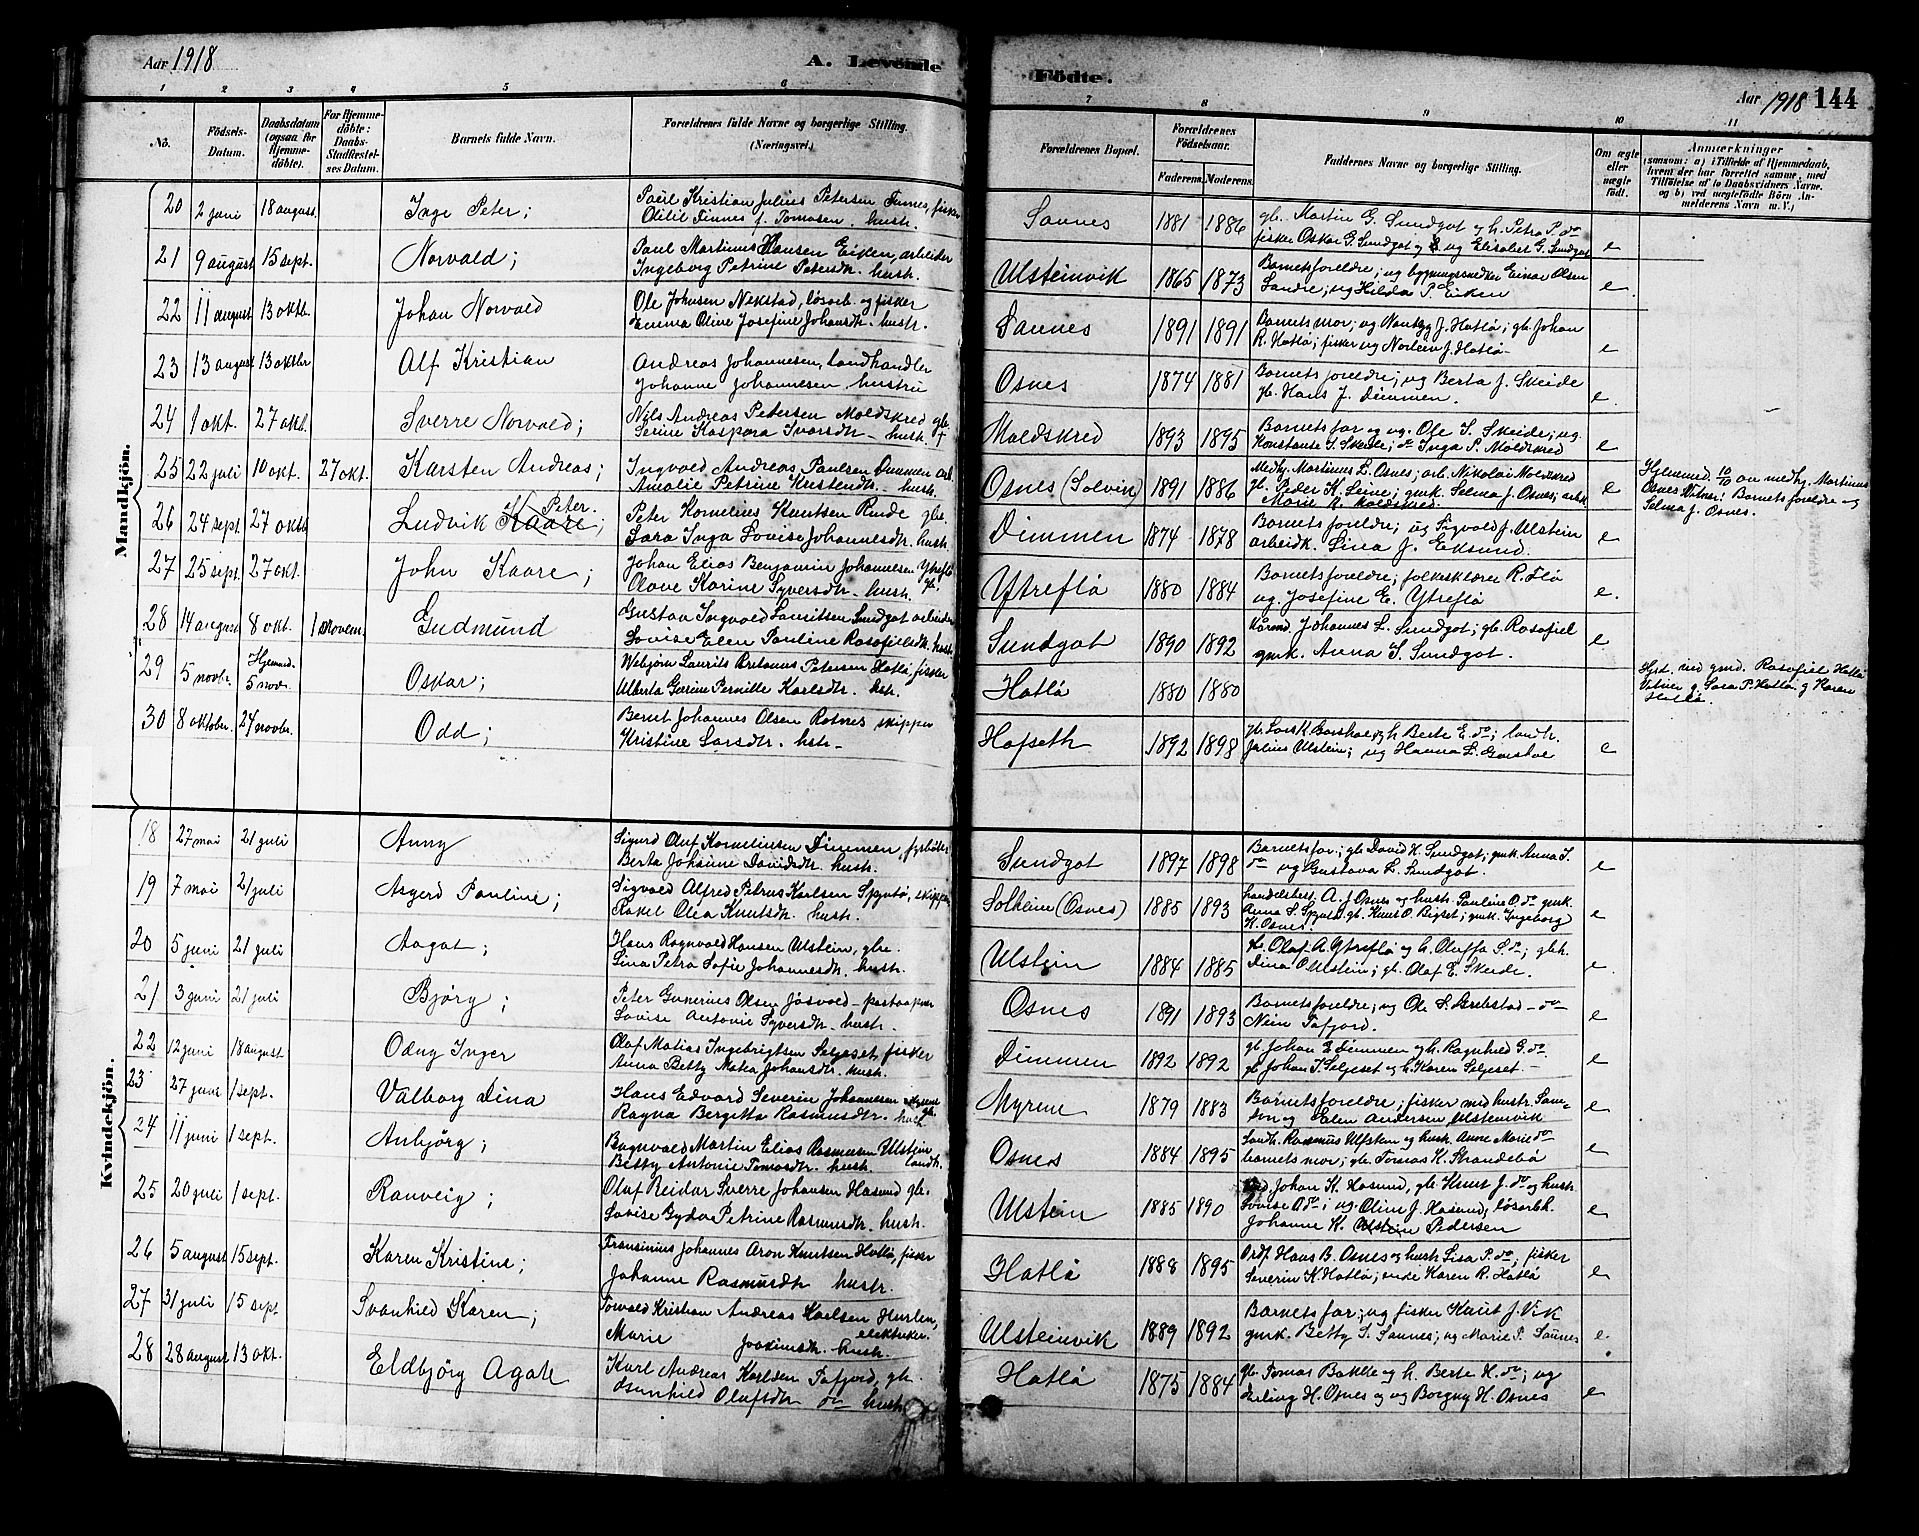 Aar 1918
A. Levende
Födte.
Aar 1918 144
1 2 3 4 5 6 7 8 9 10 11
No. Födsels-Datum. Daabsdatum (ogsaa for Hjemmedöbte). For Hjemmedöbte: Daabs-Stadfæstelses Datum. Barnets fulde Navn. Forældrenes fulde Navne og borgerlige Stilling. (Næringsvei.) Forældrenes Bopæl. Forældrenes Födselsaar. Faderens. Moderens. Faddernes Navne og borgerlige Stilling. Om ægte eller uægte födt. Anmærkninger (saasom: a) i Tilfælde af Hjemmedaab, hvem der har forrettet samme, med Tilföielse af to Daabsvidners Navne, og b) ved uægtefödte Börn Anmelderens Navn m. V.)
Mandkjön.
20 2 juni 18 august. Inge Peter; Paul Kristian Julius Petersen Finnes, fisker
Otilie Finnes f. Tomasen. hustr. Saunes 1881 1886 gb. Martin G. Sundgot og h. Petra P. do
fisker Oskar G. Sundgot og ug Elisabet G. Sundgot e
21 9 august 15 sept. Norvald; Paul Martinus Hansen Eiken, arbeider
Ingeborg Petrine Petersdtr. hustr. Ulsteinvik 1865 1873 Barnets foreldre; ug bygningssnedker Einar Olsen
Sandre; ug Hilda P. Eiken e.
22 11 august 13 oktbr. Johan Norvald Ole Johnsen Nekstad, løsarb. og fisker
Emma Olive Josefine Johansdtr. hustr. Saunes 1891 1891 Barnets mor; ug J. Hatlø; gb. Johan
R. Hatlø; fisker ug J. Hatlø e
23 13 august 13 oktbr Alf Kristian Andreas Johannesen, Landhandler
Johanne Johannesen hustru Osnes 1874 1881 Barnets foreldre; ug Berta J. Skeide
gb. Hans J. Dimmen. e.
24 1 okt. 27 okt. Sverre Norvald; Nils Andreas Petersen Moldskred gb.
Serine Kaspara Ivarsdtr. hustr. + Moldskred 1893 1895 Barnets far og ug. Ole S. Skeide; ug.
Konstanse S. Skeide; do Inga P. Moldskred e
25 22 juli 10 okt. 27 okt. Karsten Andreas; Ingvald Andreas Paulsen Dimmen arb.
Amalie Petrine Kristendtr. hustr. Osnes (Solvik) 1891 1886 Medhj. Martinus L. Osnes; arb. Nikolai Moldskred
gb. Peder K. Leine; gmk. Selma J. Osnes; arbk.
Marie R. Moldskred. e Hjemmed. 10/10 av medhj. Martinus
Osnes Vitner: Barnets foreldre og
Selma J. Osnes.
26 24 sept 27 okt. Ludvik Kaare Peter; Peter Kornelius Knutsen Runde gb.
Sara Inga Lovise Johannesdtr. hustr. Dimmen 1874 1878 Barnets foreldre; ug Sigvald J. Ulstein
arbeidk. Lina J. Eksund. e
27 25 sept. 27 okt. John Kaare; Johan Elias Benjamin Johannesen Ytreflø
gb. Olave Karine Syversdtr. hustr. Ytreflø 1880 1884 Barnets foreldre; folkesklærer R. Flø
ug. Josefine E. Ytreflø e.
28 14 august 8 okt. 1 novem. Gudmund Gustav Ingvald Lauritsen Sundgot arbeider
Lovise Elen Pauline Rasofielsdtr. hustr. Sundgot 1890 1892 Kårmd. Johannes L. Sundgot; gb. Rasofiel
gmk. Anna S. Sundgot. e
29 5 novbr. Hjemmd. 5 nov. Oskar; Webjørn Laurits Petersen Hatlø, fisker
Alberta Gurine Pernille Karlsdtr. hstr. Hatlø 1880 1880 Hjd. ved gmd. Rasofiel Hatlø
Vitner g. Sara P. Hatlø g Karen
Hatlø.
30 8 oktober. 24 novbr. Odd; Bernt Johannes Olsen Rotnes skipper
Kristine Larsdtr. hstr. Hofseth 1892 1898 gb. Lars K. Garshol og h. Berte E. do; landh.
Julius Ulstein; ug Hanna L. Garshol e
Kvindekjön.
18 27 mai 21 juli Anny Sigurd Oluf Korneliussen Dimmen, fyrbøter
Berta Johanne Davidsdtr. hustr. Sundgot 1897 1898 Barnets far; gb. David K. Sundgot; gmk. Anna S.
do ug Gustava L. Sundgot. e
19 7 mai 21 juli Asgerd Pauline; Sigvald Alfred Petrus Karlsen Spjutø, skipper
Rakel Olea Knutsdtr. hustr. Solheim (Osnes) 1885 1893 handelsbest. A. J. Osnes og hustr. Pauline O. do gmk.
Anna S. Spjutø. gb. Knut O. Rigset; gmk. Ingeborg
K. Osnes. e
20 5 juni 21 juli Aagot; Hans Ragnvald Hansen Ulstein, gbr.
Lina Petra Sofie Johannesdtr. hustr. Ulstein 1884 1885 gb. Olaf A. Ytreflø og h. Oluffa S. do; gbk.
Dina O. Ulstein; gb. Olaf E. Skeide. e.
21 3 juni 21 juli Bjørg; Peter Gunerius Olsen Jøsvold postaapner
Lovise Antonie Syversdtr. hustr. Osnes 1891 1893 Barnets foreldre; ug Ole L. Brekstad do
Tafjord. e
22 12 juni 18 august Odny Inger Olaf Matias Ingebrigtsen Seljeset fisker
Anna Betty Matea Johansdtr. hustr. Dimmen 1892 1892 gb. Johan E Dimmen og h. Ragnhild G. do
gb Johan I. Seljeset og h. Karen Seljeset e
23 27 juni 1 sept. Valborg Dina Hans Edvard Severin Johannesen Myrene gb.
Ragna Bergitta Rasmusdtr. hustr Myrene 1879 1883 Barnets foreldre; fisker med hustr.
og Elen Andersen Ulsteinvik e
24 11 juni 1 sept. Anbjørg; Ragnvald Martin Elias Rasmussen Ulstein,
Betty Antonie Tomasdtr. hustr. landh. Osnes 1884 1895 Landh. Rasmus Ulstein og hustr. Anne Marie do
barnets mor; gb. Tomas K. Strandebø e
25 20 juli 1 sept. Ranveig; Olaf Reidar Sverre Johansen Hasund gb.
Lovise Gyda Petrine Rasmusdtr. hustr. Ulstein 1885 1890 Johan K. Hasund, gb. Knut J. do og hustr.
Lovise A do; ug. Olina J. Hasund; løsarbk.
Johanne K. Ulstein Pedersen e
26 5 august 15 sept. Karen Kristine; Fransinius Johannes Aron Knutsen Hatlø, fisker
Johanne Rasmusdtr hustr. Hatlø 1888 1895 Ordf. Hans B. Osnes og hustr. Lisa P. do; fisker
Severin K. Hatlø; enke Karen R. Hatlø e
27 31 juli 15 sept Svanhild Karen; Torvald Kristian Andreas Karlsen Hurlen,
Marie Joakimsdtr. hustr. elektriker. Ulsteinvik 1889 1892 Barnets far; ug fisker Knut J. Vik
gmk. Betty S. Saunes; ug Marie P. Saunes e.
28 28 august 13 okt. Eldbjørg Agate Karl Andreas Karlsen Tafjord, gb.
Osvnhild Olufsdtr do hustr Hatlø 1875 1884 gb. Tomas Bakke og h. Berte K. do; ug
Erling H. Osnes og ug Borgny H. Osnes e